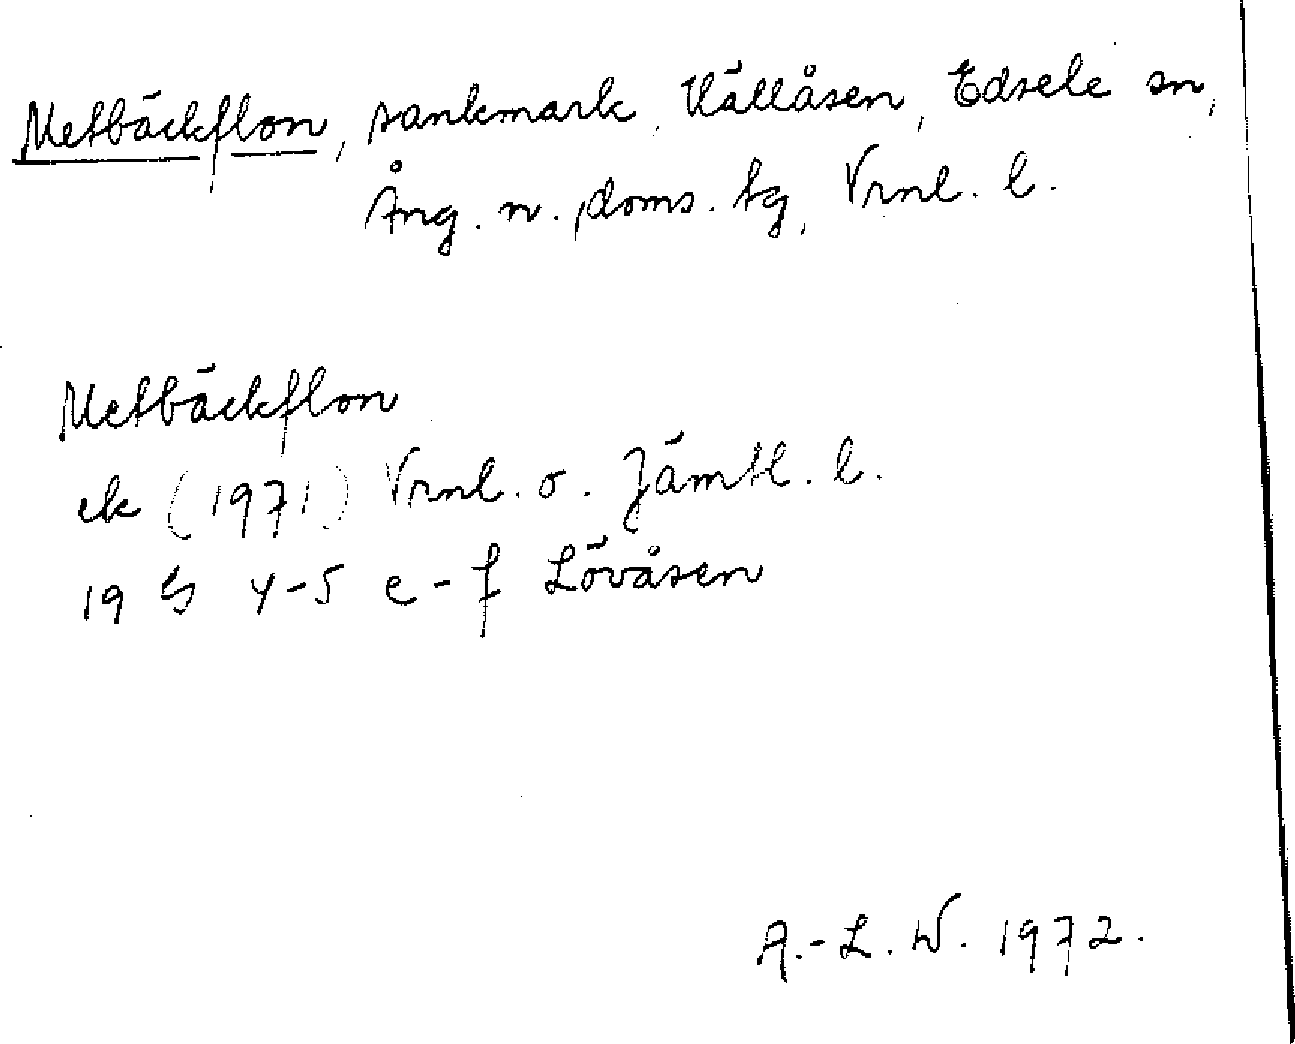 Metbäckflon, sankmark, Källåsen, Edsele sn,
Ång. n. doms. tg, Vrnl. l.
Metbäckflon
ek (1971) Vrnl. o. Jämtl. l.
19 G 4-5 e-f Lövåsen
A.-L. W. 1972.